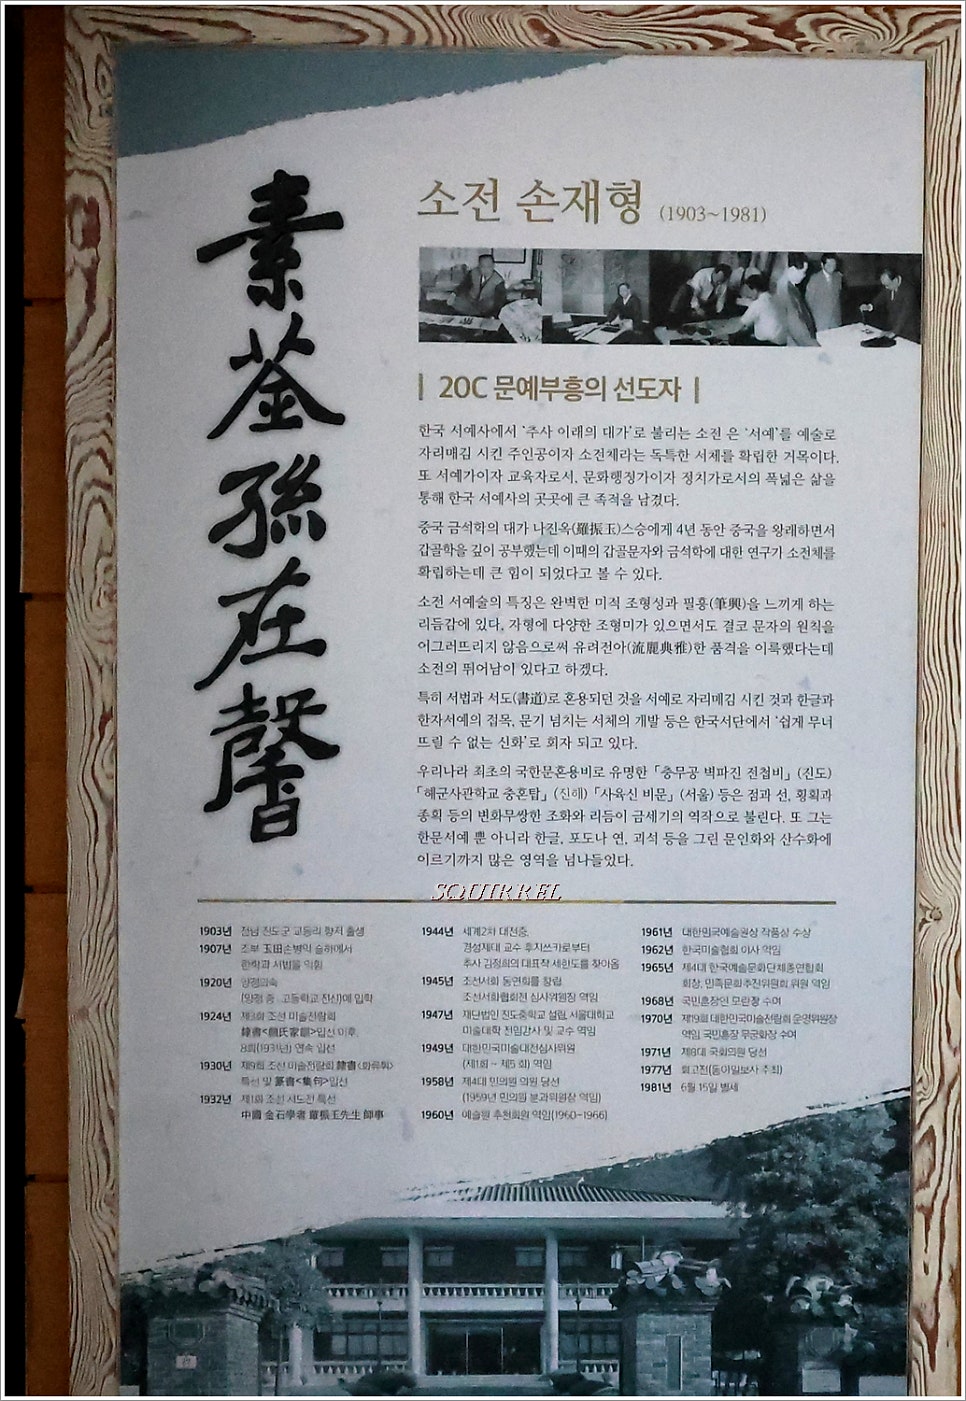 素荃 孫在馨
소전 손재형 (1903~1981)
20C 문예부흥의 선도자
한국 서예사에서 '추사 이래의 대가'로 불리는 소전 은 '서예'를 예술로
자리매김 시킨 주인공이자 소전체라는 독특한 서체를 확립한 거목이다.
또 서예가이자 교육자로서, 문화행정가이자 정치가로서의 폭넓은 삶을
통해 한국 서예사의 곳곳에 큰 족적을 남겼다.
중국 금석학의 대가 나진옥(羅振玉)스승에게 4년 동안 중국을 왕래하면서
갑골학을 깊이 공부했는데 이때의 갑골문자와 금석학에 대한 연구가 소전체를
확립하는데 큰 힘이 되었다고 볼 수 있다.
소전 서예술의 특징은 완벽한 미적 조형성과 필흥(筆興)을 느끼게 하는
리듬감에 있다. 자형에 다양한 조형미가 있으면서도 결코 문자의 원칙을
어그러뜨리지 않음으로써 유려전아(流麗典雅)한 품격을 이룩했다는데
소전의 뛰어남이 있다고 하겠다.
특히 서법과 서도(書道)로 혼용되던 것을 서예로 자리매김 시킨 것과 한글과
한자서예의 접목, 문기 넘치는 서체의 개발 등은 한국서단에서 '쉽게 무너
뜨릴 수 없는 신화'로 회자 되고 있다.
우리나라 최초의 국한문혼용비로 유명한 「충무공 벽파진 전첩비」 (진도)
「해군사관학교 충혼탑」 (진해) 「사육신 비문」 (서울) 등은 점과 선, 횡획과
종획 등의 변화무쌍한 조화와 리듬이 금세기의 역작으로 불린다. 또 그는
한문서예 뿐 아니라 한글, 포도나 연, 괴석 등을 그린 문인화와 산수화에
이르기까지 많은 영역을 넘나들었다.
SQUIRREL
1903년 전남 진도군 교동리 향저 출생
1907년 조부 玉田손병익 슬하에서
한학과 서법을 익힘
1920년 양정의숙
(양정 중 . 고등학교 전신)에 입학
1924년 제3회 조선 미술전람회
隷書<顔氏家訓>입선 이후,
8회(1931년) 연속 입선
1930년 제9회 조선 미술전람회 隷書
특선 및 篆書<集句>입선
1932년 제1회 조선 서도전 특선
中國 金石學者 羅振玉先生 師事
1944년 세계2차 대전중,
경성제대 교수 후지쓰카로부터
추사 김정희의 대표작 세한도를 찾아옴
1945년 조선서화 동연회를 창립
조선서화협회전 심사위원장 역임
1947년 재단법인 진도중학교 설립, 서울대학교
미술대학 전임강사 및 교수 역임
1949년 대한민국미술대전심사위원
(제1회 ~ 제5 회) 역임
1958년 제4대 민의원 의원 당선
(1959년 민의원 분과위원장 역임)
1960년 예술원 추천회원 역임(1960~1966)
1961년 대한민국예술원상 작품상 수상
1962년 한국미술협회 이사 역임
1965년 제4대 한국예술문화단체총연합회
회장, 민족문화추진위원회 위원 역임
1968년 국민훈장인 모란장 수여
1970년 제19회 대한민국미술전람회 운영위원장
역임 국민훈장 무궁화장 수여
1971년 제8대 국회의원 당선
1977년 회고전(동아일보사 주최)
1981년 6월 15일 별세